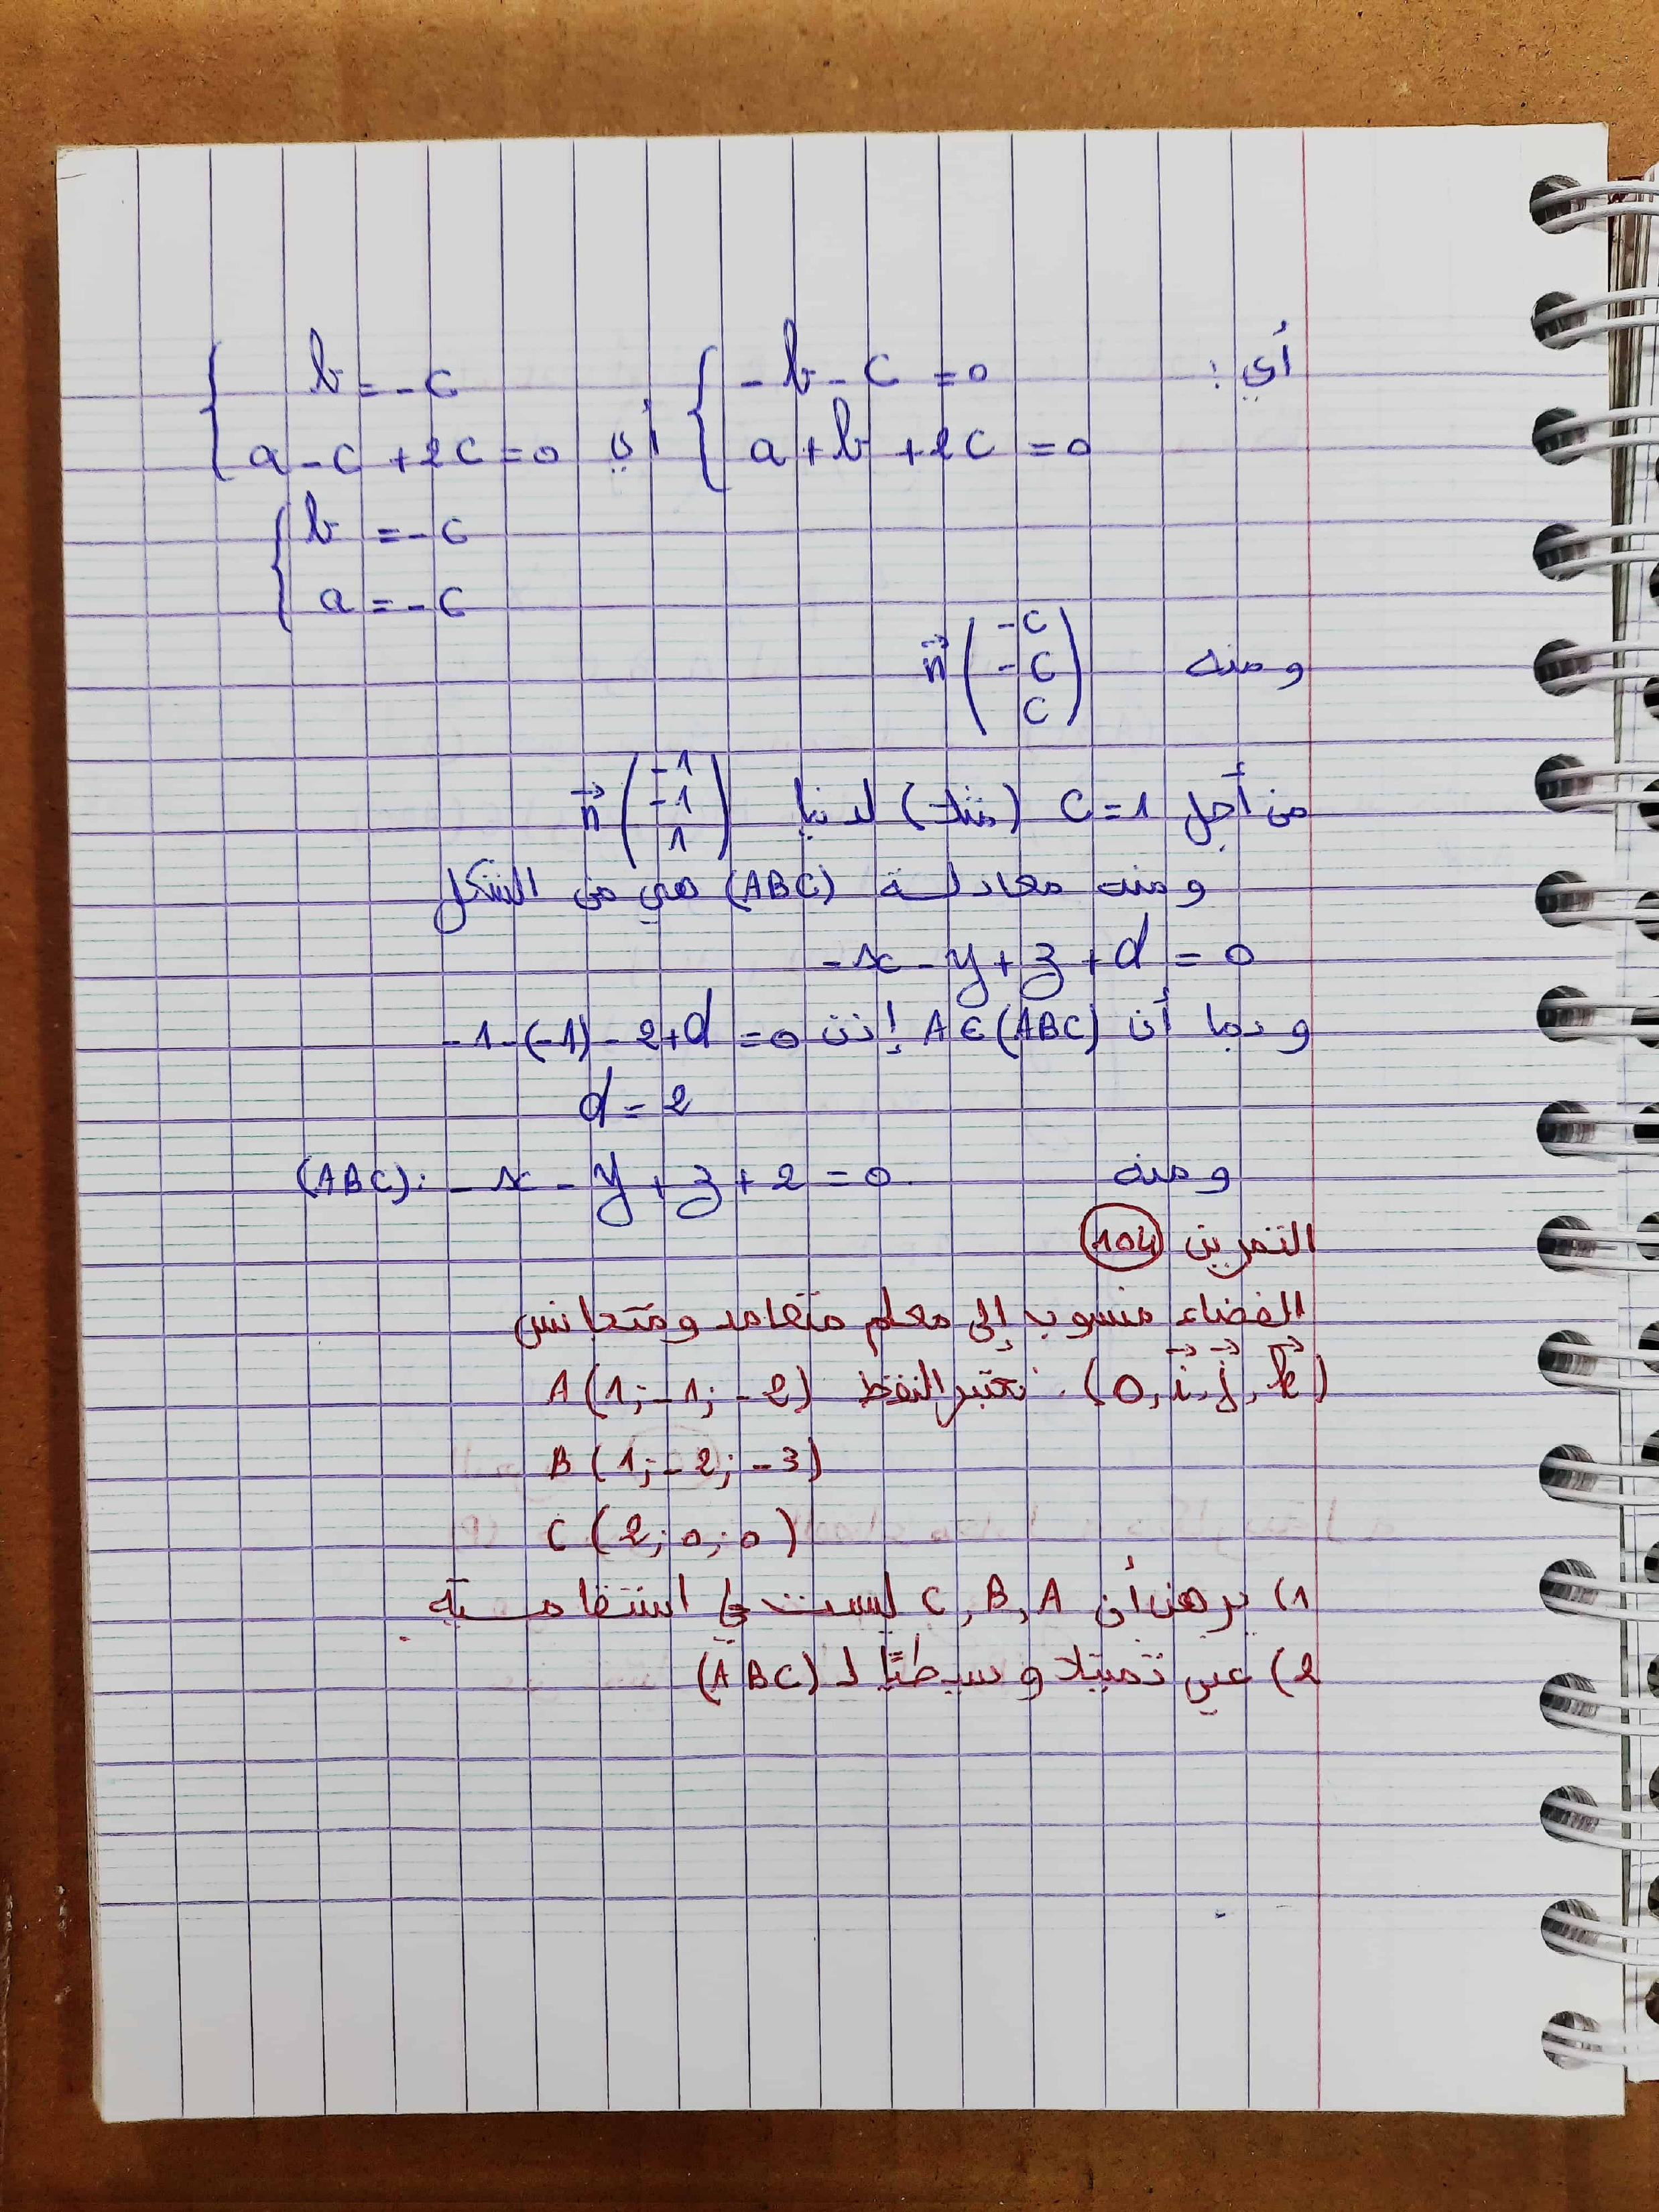 أي : { -b - c = 0 أي { b = -c
a + b + 2c = 0 a - c + 2c = 0
{ b = -c
a = -c
ومنه n⃗ ( -c
-c
c )
من أجل c = 1 (مثلا) لدينا n⃗ ( -1
-1
1 )
ومنه معادلة (ABC) هي من الشكل
-x - y + z + d = 0
وبما أن A ∈ (ABC) إذن -1 - (-1) - 2 + d = 0
d = 2
ومنه (ABC): -x - y + z + 2 = 0.
التمرين 104
الفضاء منسوب إلى معلم متعامد ومتجانس
(O, i⃗, j⃗, k⃗). نعتبر النقط A(1; -1; -2)
B(1; -2; -3)
C(2; 0; 0)
1) برهن أن C, B, A ليست في استقامية
2) عين تمثيلا وسيطيًا لـ (ABC)